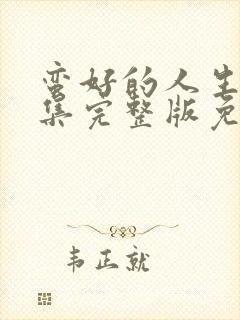 蛮好的人生
集完整版免
韦正就